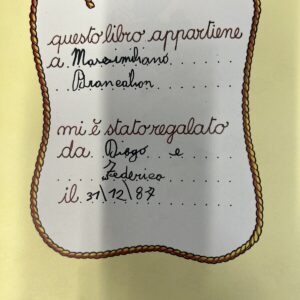 questo libro appartiene
a Massimiliano
Brancaleon
mi è stato regalato
da Diogo e
Federico
il 31/12/87